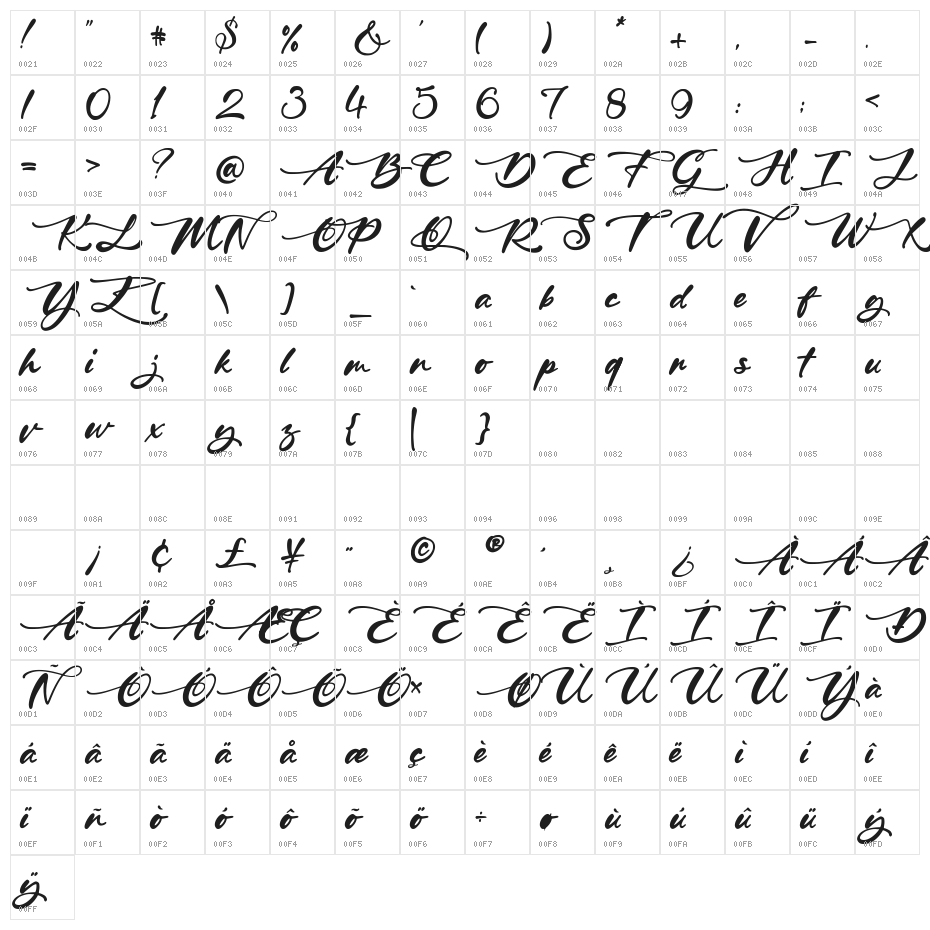 ! " # $ % & ' ( ) * + , - .
0021 0022 0023 0024 0025 0026 0027 0028 0029 002A 002B 002C 002D 002E
/ 0 1 2 3 4 5 6 7 8 9 : ; <
002F 0030 0031 0032 0033 0034 0035 0036 0037 0038 0039 003A 003B 003C
= > ? @ A B C D E F G H I J
003D 003E 003F 0040 0041 0042 0043 0044 0045 0046 0047 0048 0049 004A
K L M N O P Q R S T U V W X
004B 004C 004D 004E 004F 0050 0051 0052 0053 0054 0055 0056 0057 0058
Y Z [ \ ] _ ` a b c d e f g
0059 005A 005B 005C 005D 005F 0060 0061 0062 0063 0064 0065 0066 0067
h i j k l m n o p q r s t u
0068 0069 006A 006B 006C 006D 006E 006F 0070 0071 0072 0073 0074 0075
v w x y z { | }
0076 0077 0078 0079 007A 007B 007C 007D 0080 0082 0083 0084 0085 0088
0089 008A 008C 008E 0091 0092 0093 0094 0096 0098 0099 009A 009C 009E
¡ ¢ £ ¥ ¨ © ® ´ ¸ ¿ À Á Â
009F 00A1 00A2 00A3 00A5 00A8 00A9 00AE 00B4 00B8 00BF 00C0 00C1 00C2
Ã Ä Å Æ Ç È É Ê Ë Ì Í Î Ï Ð
00C3 00C4 00C5 00C6 00C7 00C8 00C9 00CA 00CB 00CC 00CD 00CE 00CF 00D0
Ñ Ò Ó Ô Õ Ö × Ø Ù Ú Û Ü Ý à
00D1 00D2 00D3 00D4 00D5 00D6 00D7 00D8 00D9 00DA 00DB 00DC 00DD 00E0
á â ã ä å æ ç è é ê ë ì í î
00E1 00E2 00E3 00E4 00E5 00E6 00E7 00E8 00E9 00EA 00EB 00EC 00ED 00EE
ï ñ ò ó ô õ ö ÷ ø ù ú û ü ý
00EF 00F1 00F2 00F3 00F4 00F5 00F6 00F7 00F8 00F9 00FA 00FB 00FC 00FD
ÿ
00FF